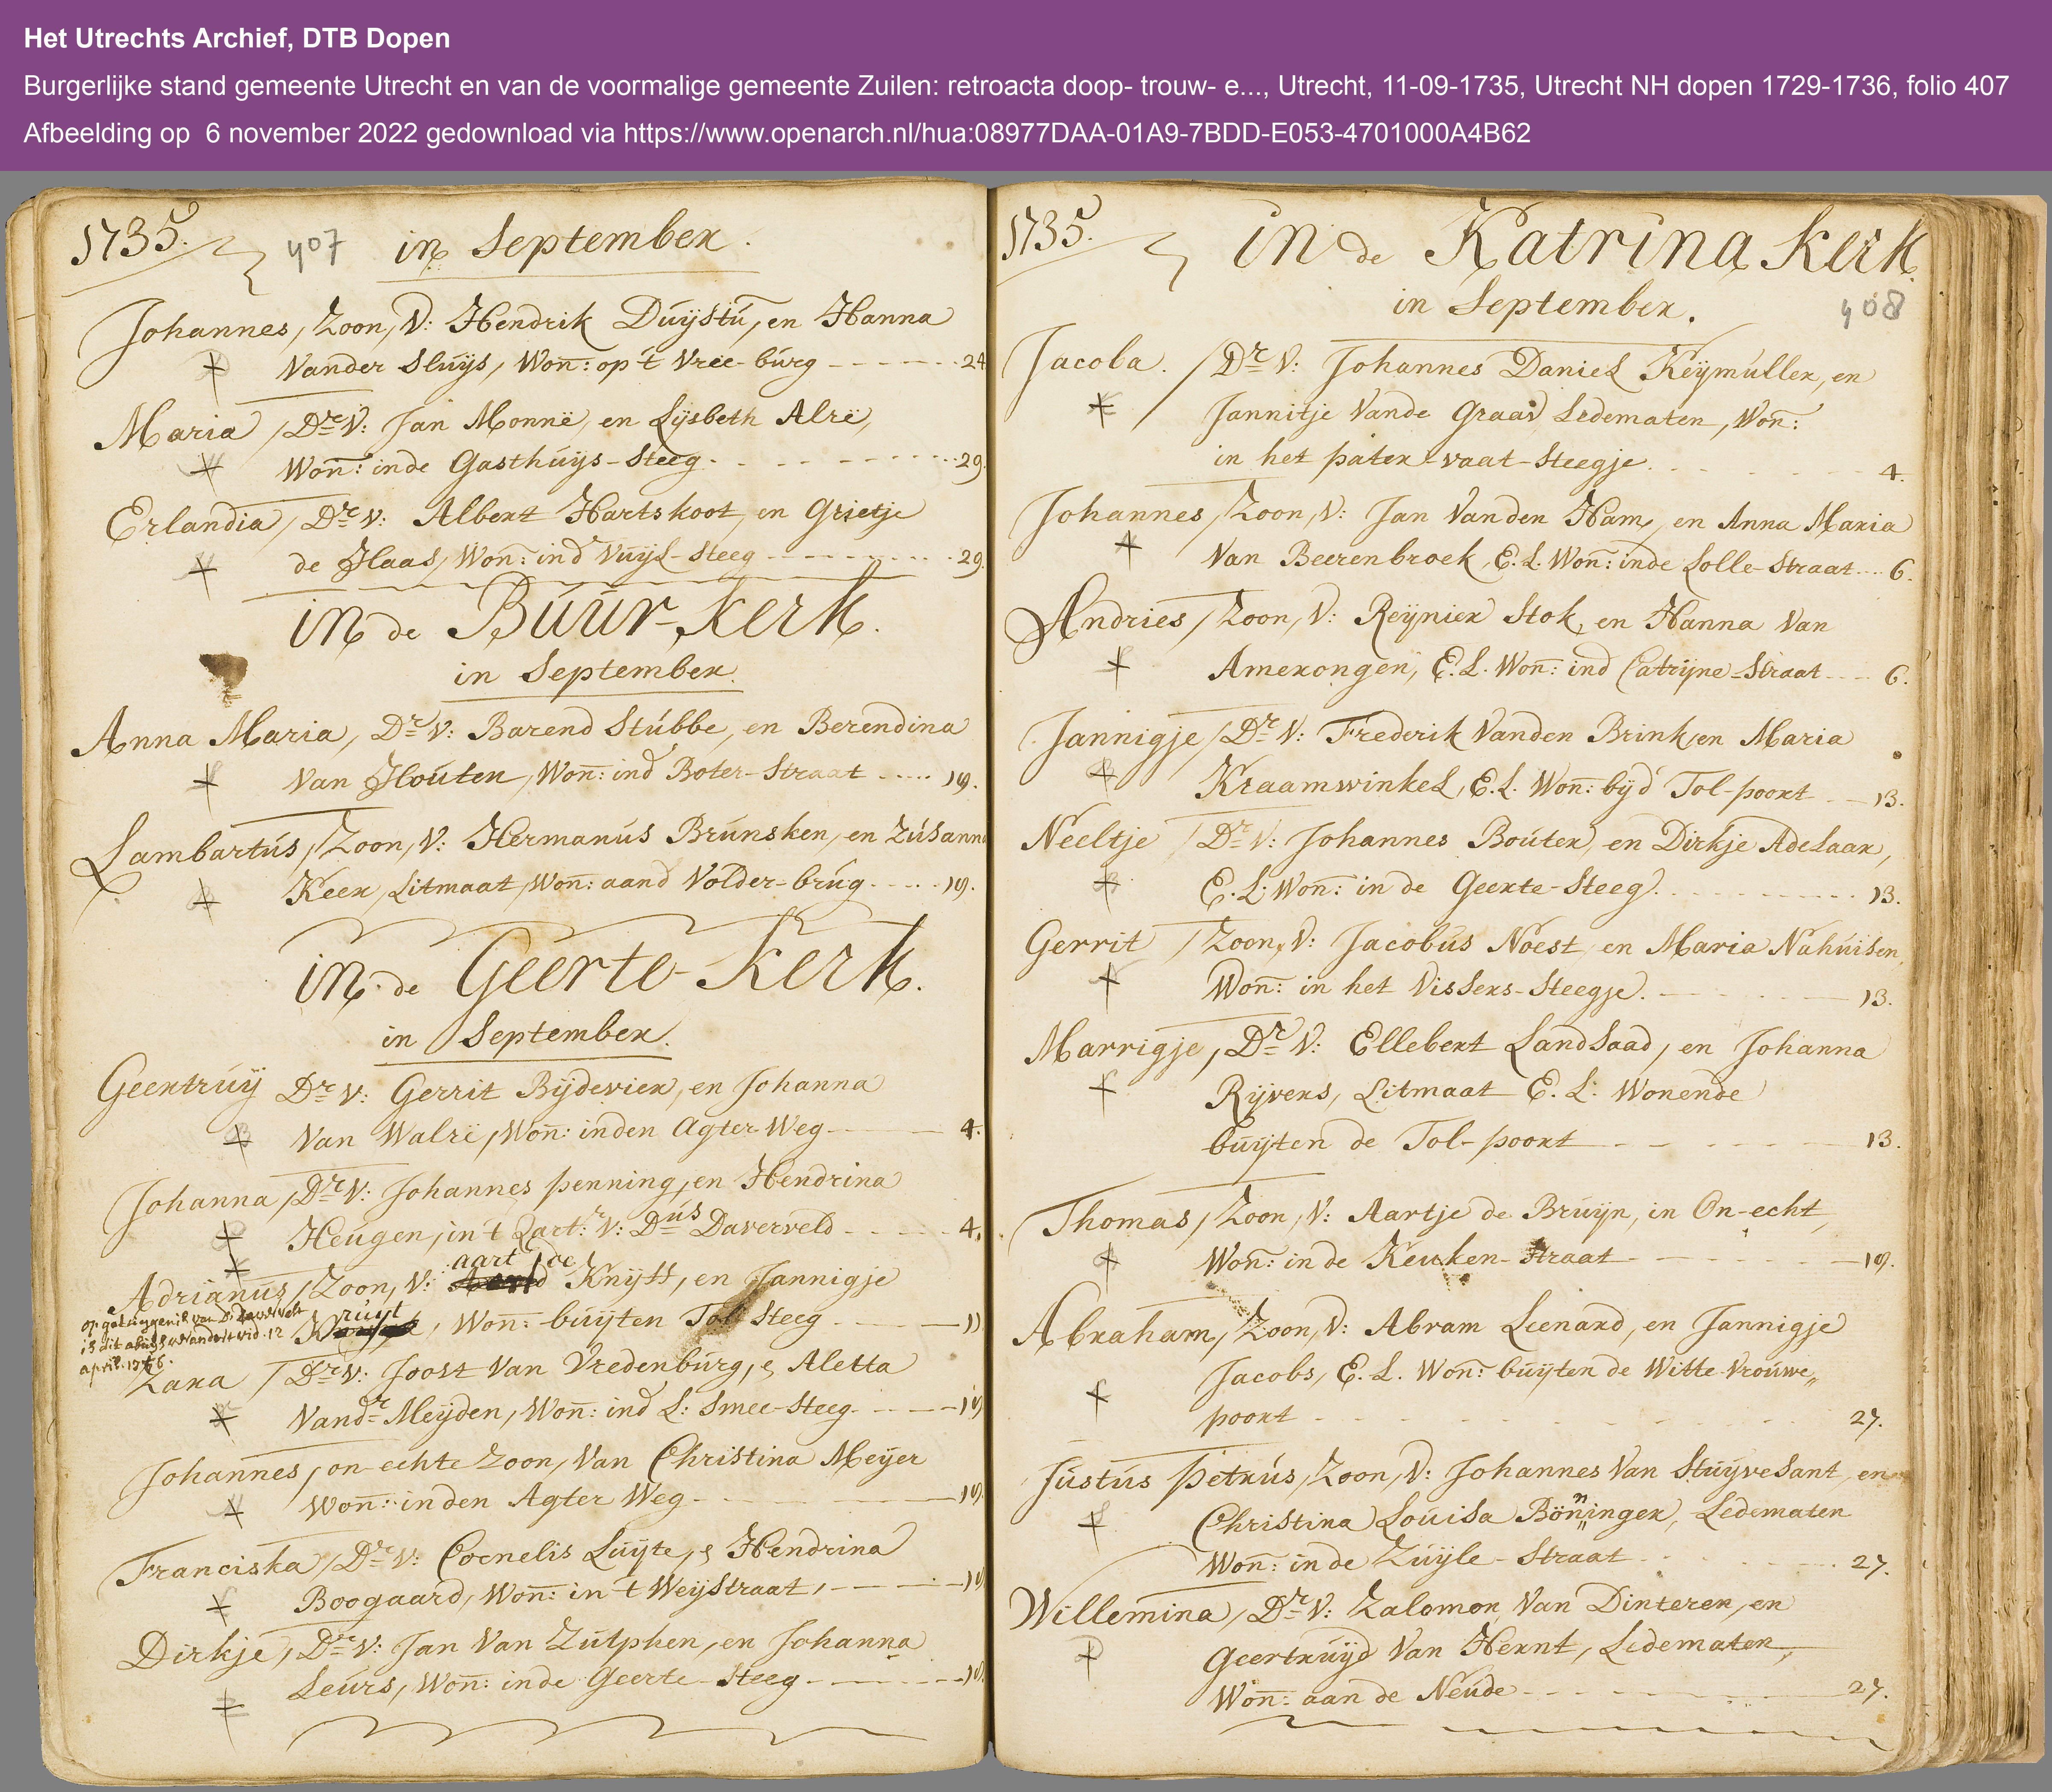 Het Utrechts Archief, DTB Dopen
Burgerlijke stand gemeente Utrecht en van de voormalige gemeente Zuilen: retroacta doop- trouw- e..., Utrecht, 11-09-1735, Utrecht NH dopen 1729-1736, folio 407
Afbeelding op 6 november 2022 gedownload via https://www.openarch.nl/hua:08977DAA-01A9-7BDD-E053-4701000A4B62
1735. 407 in September.
Johannes, Zoon, V: Hendrik Duÿstú, en Hanna
Vander Sluÿs, Won: op 't Vree-búrg 24
Maria, Dr V: Jan Monnë, en Lÿsbeth Alrë,
Won: inde Gasthúÿs-Steeg 29.
Erlandia, Dr V: Albert Hartskoot, en Grietje
de Haas, Won: ind Vuÿl-Steeg 29.
in de Búúr-Kerk.
in September.
Anna Maria, Dr V: Barend Stúbbe, en Berendina
Van Houten, Won: ind Boter-Straat 19.
Lambartús, Zoon, V: Hermanús Brúnsken, en Zúsanna
Keer, Litmaat, Won: aand Volder-brúg 19.
in de Geerte-Kerk.
in September.
Geertrúÿ Dr V: Gerrit Bÿdevier, en Johanna
Van Walrë, Won: inden Agter Weg 4.
Johanna, Dr V: Johannes Penning, en Hendrina
Heúgen, in 't Qart:r V: Dús Daverveld 4.
aart de
Adrianús, Zoon, V: Knÿff, en Jannigje
Kruÿt, Won: buÿten Tol Steeg 11
op getuÿgenis van Ds Daverveldt
is dit abuÿs verandert vid. 12
april. 1746.
Zara, Dr V: Joost Van Vredenbúrg, & Aletta
Vandr Meÿden, Won: ind L: Smee-Steeg 19
Johannes, on-echte Zoon, Van Christina Meÿer
Won: inden Agter Weg 19.
Franciska, Dr V: Cornelis Luÿte, & Hendrina
Boogaard, Won: in 't WeÿStraat, 19
Dirkje, Dr V: Jan Van Zútphen, en Johanna
Leúrs, Won: inde Geerte Steeg 19.
1735. in de Katrina Kerk
in September. 408
Jacoba. Dr V: Johannes Daniel Keÿmúller, en
Jannitje Vande Graav, Ledematen, Won:
in het pater-vaat-Steegje 4.
Johannes, Zoon, V: Jan Vanden Ham, en Anna Maria
Van Beerenbroek, E. L. Won: inde Lolle-Straat 6.
Andries, Zoon, V: Reÿnier Stok, en Hanna Van
Amerongen, E. L. Won: ind Catrÿne-Straat 6.
Jannigje, Dr V: Frederik Vanden Brink, en Maria
Kraamwinkel, E. L. Won: bÿd Tol-poort 13.
Neeltje, Dr V: Johannes Boúter, en Dirkje Adelaar,
E. L. Won: in de Geerte-Steeg 13.
Gerrit, Zoon, V: Jacobús Noest, en Maria Nahúisen,
Won: in het Vissers-Steegje 13.
Marrigje, Dr V: Ellebert Landsaad, en Johanna
Rÿvers, Litmaat E. L: Wonende
buÿten de Tol-poort 13.
Thomas, Zoon, V: Aartje de Bruÿn, in On-echt,
Won: in de Keuken-Straat 19.
Abraham, Zoon, V: Abram Leenard, en Jannigje
Jacobs, E. L. Won: buÿten de Witte Vroúwe,,
poort 27.
Jústús Petrús, Zoon, V: Johannes Van Stuÿvesant, en
Christina Loúisa Bönninger, Ledematen
Won: in de Zuÿle-Straat 27.
Willemina, Dr V: Zalomon Van Dinteren, en
Geertrúÿd Van Hernt, Ledematen,
Won: aan de Neúde 27.